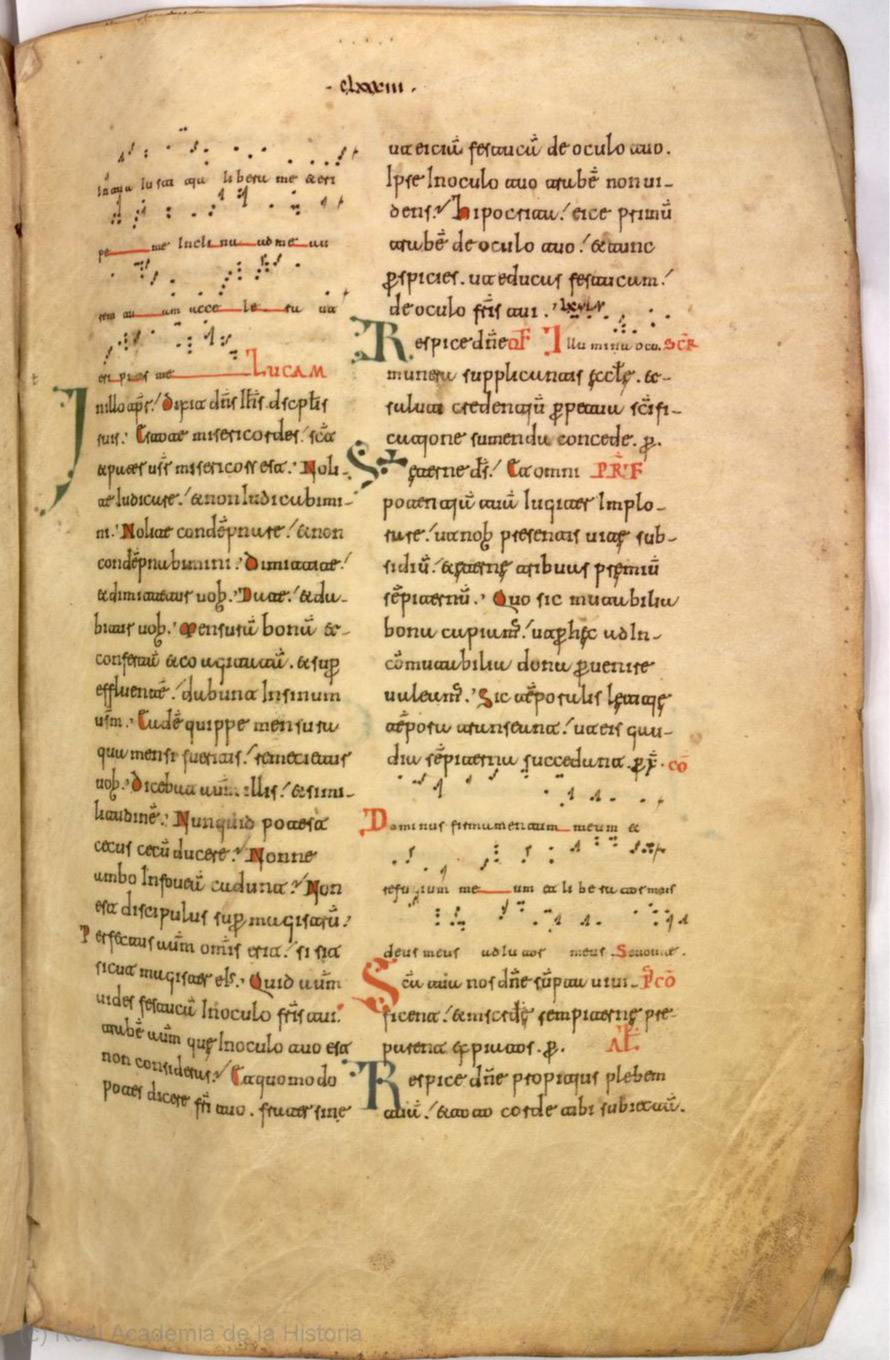 · clxxxiii ·
In tua iusticia libera me & eri
pe me Inclina ad me au
rem tuam accelera ut
eripias me LUCAM
In illo tp̄r. dixit dn̄s ih̄s discipl̄is
suis. Estote misericordes. sic̄
& pater ur̄ misericors est. Noli
te iudicare. & non Iudicabimi
ni. Nolite condēpnare. & non
condēpnabimini. Dimittite.
& dimittetur uob. Date. & da
bitur uob. Mensurā bonā &
confertā & coagitatā. & sup
effluentē. dabunt In sinum
ur̄m. Eadē quippe mensura
qua mensi fueritis. remetietur
uob. Dicebat autm̄ illis. & simi
litudinē. Nunquid potest
cecus cecū ducere. Nonne
ambo In foueā cadunt. Non
est discipulus sup magistrū.
Perfectus autm̄ omīs erit. si sit
sicut magister eis. Quid autm̄
uides festucā In oculo fr̄is tui.
trabē autm̄ que In oculo tuo est
non consideras. Et quomodo
potes dicere fr̄i tuo. frater sine
ut eiciā festucā de oculo tuo.
Ipse In oculo tuo trabē non ui
dens. Hipocrita. eice primū
trabē de oculo tuo. & tunc
pspicies. ut educas festucam.
de oculo fr̄is tui.
Respice dn̄e OF Illumina oco. SCR
munera supplicantis eccle. &
saluti credentiū ppetua sc̄ifi
catione sumenda concede. p.
eterne ds̄. Et omni PRF
potentiā tuā iugiter Implo
rare. ut nob presentis uite sub
sidiū. & eterne tribuas premiū
sēpiternū. Quo sic mutabilia
bona capiam. ut p hec ad In
cōmutabilia dona puenire
ualeam. Sic tēporalis letitie
tēpora transeant. ut eis gau
dia sēpiterna succedant. p x. cō
Dominus firmamentum meum &
refugium meum & liberator meus
deus meus adiutor meus. Seuouae.
Sc̄a tua nos dn̄e sūpta uiui PCŌ
ficent. & miscd̄e sempiterne pre
parent expiatos. p. AL
Respice dn̄e propitius plebem
tuā. & toto corde tibi subiectā.
(c) Real Academia de la Historia